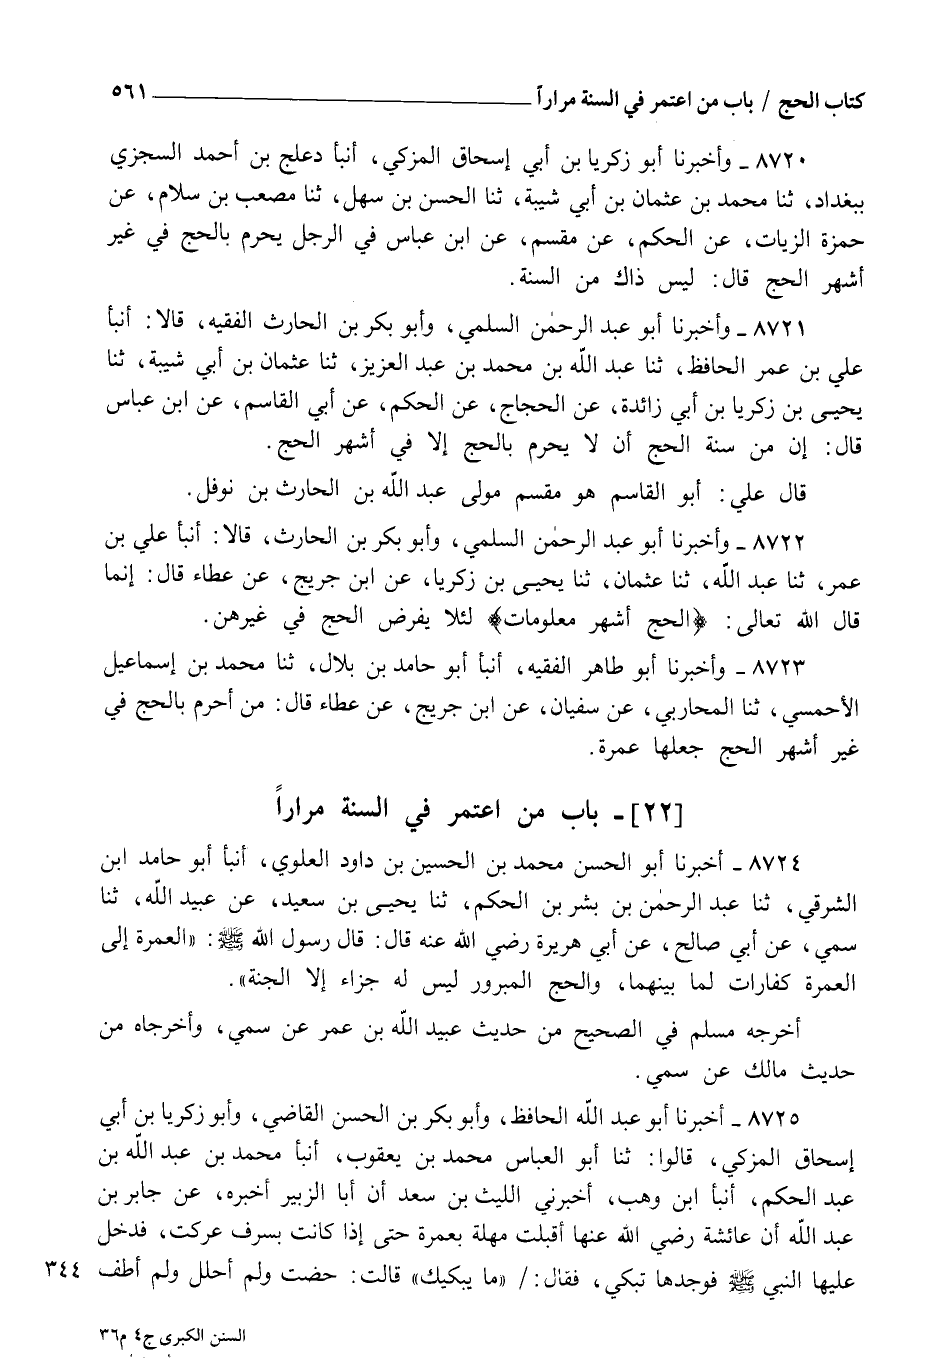 كتاب الحج / باب من اعتمر في السنة مراراً ٥٦١
٨٧٢٠ ـ وأخبرنا أبو زكريا بن أبي إسحاق المزكي، أنبأ دعلج بن أحمد السجزي
ببغداد، ثنا محمد بن عثمان بن أبي شيبة، ثنا الحسن بن سهل، ثنا مصعب بن سلام، عن
حمزة الزيات، عن الحكم، عن مقسم، عن ابن عباس في الرجل يحرم بالحج في غير
أشهر الحج قال: ليس ذاك من السنة.
٨٧٢١ ـ وأخبرنا أبو عبد الرحمٰن السلمي، وأبو بكر بن الحارث الفقيه، قالا: أنبأ
علي بن عمر الحافظ، ثنا عبد اللّه بن محمد بن عبد العزيز، ثنا عثمان بن أبي شيبة، ثنا
يحيـى بن زكريا بن أبي زائدة، عن الحجاج، عن الحكم، عن أبي القاسم، عن ابن عباس
قال: إن من سنة الحج أن لا يحرم بالحج إلا في أشهر الحج.
قال علي: أبو القاسم هو مقسم مولى عبد اللّه بن الحارث بن نوفل.
٨٧٢٢ ـ وأخبرنا أبو عبد الرحمٰن السلمي، وأبو بكر بن الحارث، قالا: أنبأ علي بن
عمر، ثنا عبد اللّه، ثنا عثمان، ثنا يحيـى بن زكريا، عن ابن جريج، عن عطاء قال: إنما
قال الله تعالى: ﴿الحج أشهر معلومات﴾ لئلا يفرض الحج في غيرهن.
٨٧٢٣ ـ وأخبرنا أبو طاهر الفقيه، أنبأ أبو حامد بن بلال، ثنا محمد بن إسماعيل
الأحمسي، ثنا المحاربي، عن سفيان، عن ابن جريج، عن عطاء قال: من أحرم بالحج في
غير أشهر الحج جعلها عمرة.
[٢٢] ـ باب من اعتمر في السنة مراراً
٨٧٢٤ ـ أخبرنا أبو الحسن محمد بن الحسين بن داود العلوي، أنبأ أبو حامد ابن
الشرقي، ثنا عبد الرحمٰن بن بشر بن الحكم، ثنا يحيـى بن سعيد، عن عبيد اللّه، ثنا
سمي، عن أبي صالح، عن أبي هريرة رضي الله عنه قال: قال رسول الله ﷺ: «العمرة إلى
العمرة كفارات لما بينهما، والحج المبرور ليس له جزاء إلا الجنة».
أخرجه مسلم في الصحيح من حديث عبيد اللّه بن عمر عن سمي، وأخرجاه من
حديث مالك عن سمي.
٨٧٢٥ ـ أخبرنا أبو عبد اللّه الحافظ، وأبو بكر بن الحسن القاضي، وأبو زكريا بن أبي
إسحاق المزكي، قالوا: ثنا أبو العباس محمد بن يعقوب، أنبأ محمد بن عبد اللّه بن
عبد الحكم، أنبأ ابن وهب، أخبرني الليث بن سعد أن أبا الزبير أخبره، عن جابر بن
عبد اللّه أن عائشة رضي الله عنها أقبلت مهلة بعمرة حتى إذا كانت بسرف عركت، فدخل
عليها النبي ﷺ فوجدها تبكي، فقال:/ «ما يبكيك» قالت: حضت ولم أحلل ولم أطف ٣٤٤
السنن الكبرى ج٤ م٣٦